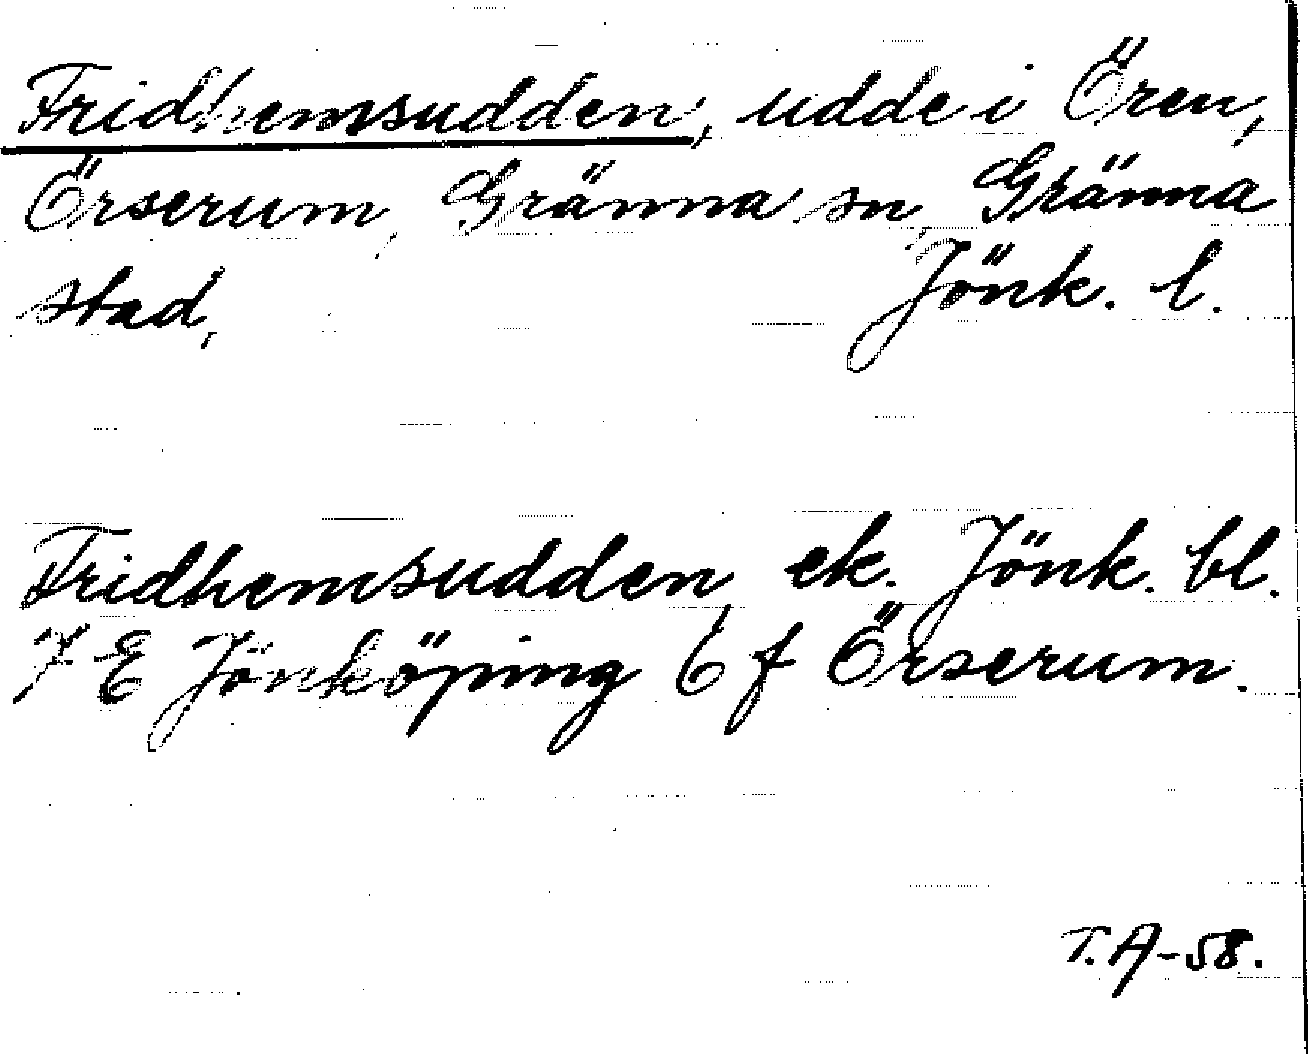 Fridhemsudden, udde i Ören,
Örserum, Gränna sn, Gränna
stad, Jönk. l.
Fridhemsudden, ek. Jönk. bl.
7 E Jönköping 6 f Örserum.
T.A-58.